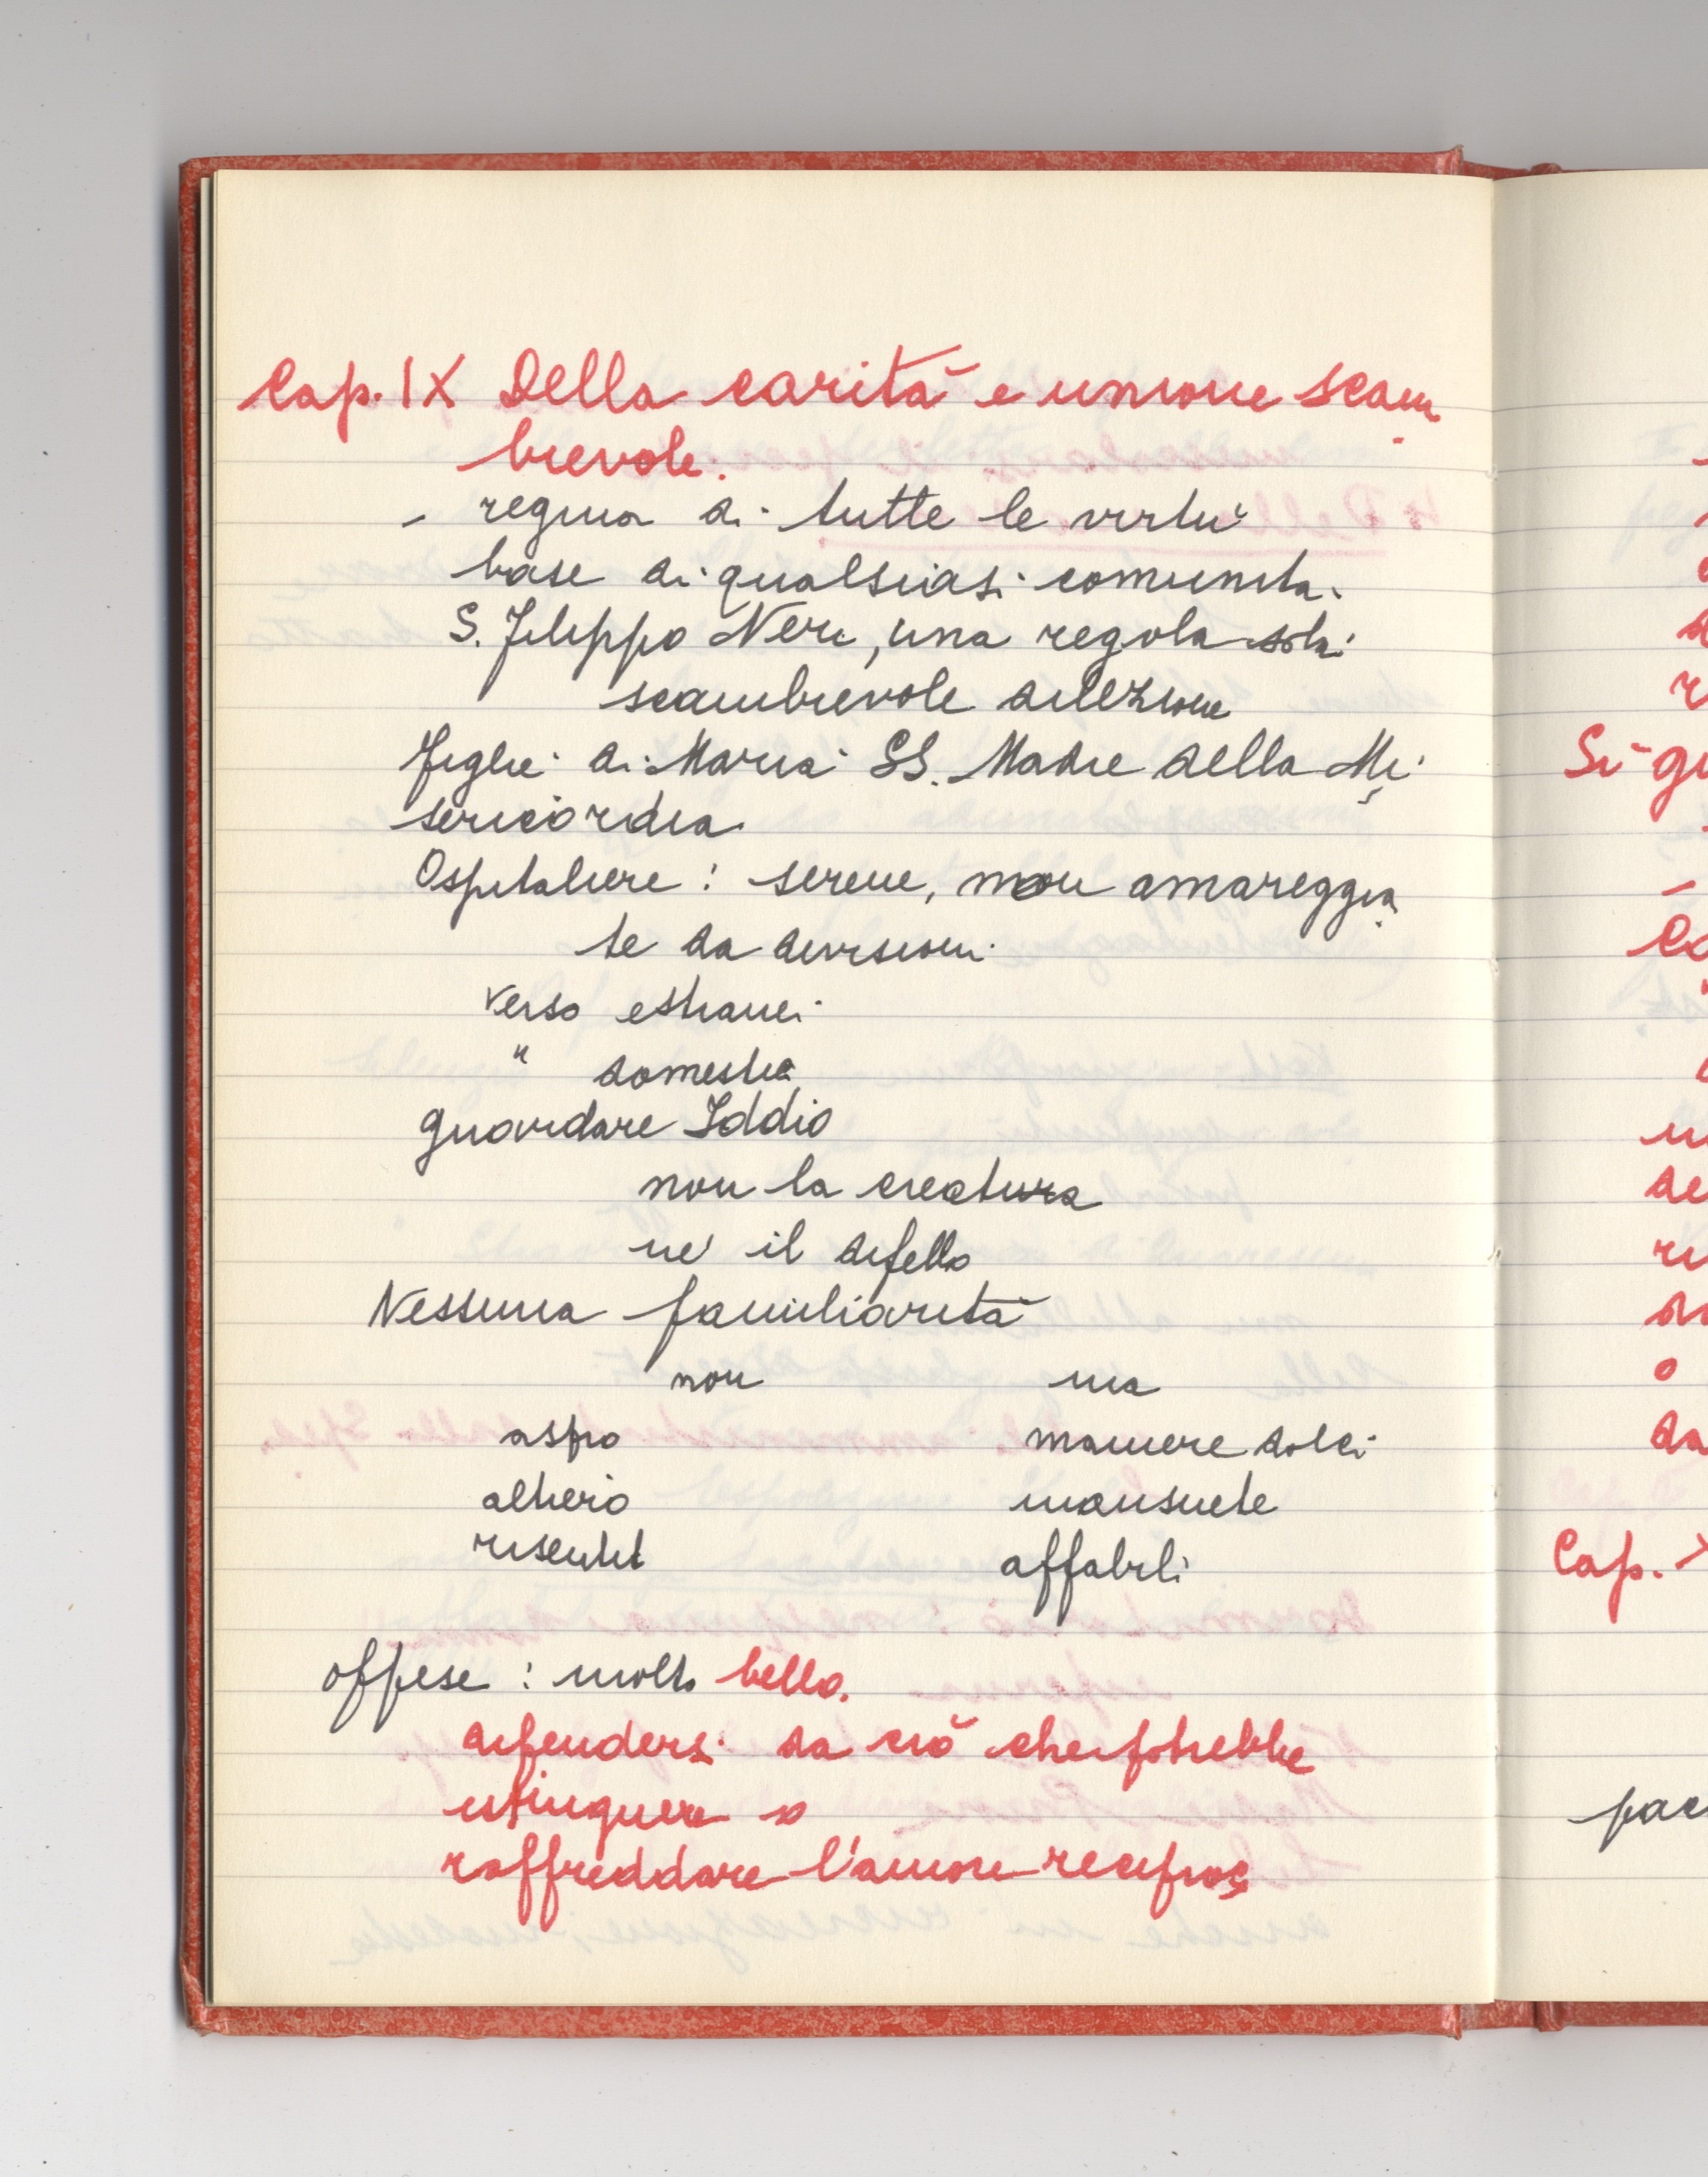 Cap. IX Della carità e unione scam
bievole.
- regina di tutte le virtù
base di qualsiasi comunità.
S. Filippo Neri, una regola sola:
scambievole dilezione
Figlie di Maria SS. Madre della Mi
sericordia
Ospitaliere: serene, non amareggia
te da divisioni
verso estranei
" domestici
guardare Iddio
non la creatura
né il difetto
Nessuna familiarità
non ma
aspro maniere dolci
altero mansuete
risentit affabili
offese: molto bello.
difendersi da ciò che potrebbe
estinguere o
raffreddare l'amore reciproco
Si gu
Cap. X